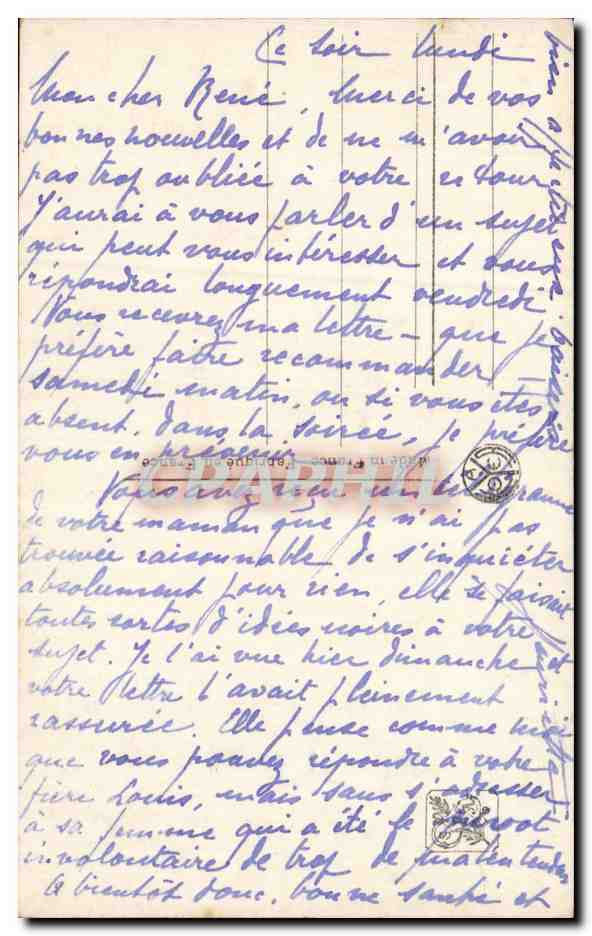 Ce soir lundi
Mon cher René, Merci de vos
bonnes nouvelles et de ne m'avoir
pas trop oubliée à votre retour
J'aurai à vous parler d'un sujet
qui peut vous intéresser et vous
répondrai longuement vendredi
Vous recevrez ma lettre – que je
préfère faire recommander –
samedi matin, ou si vous êtes
absent, dans la soirée, je préfère
vous en prévenir.
Made in France - Fabriqué en France
CPARAMA
Vous avez reçu un
de votre maman que je n'ai pas
trouvée raisonnable de s'inquiéter
absolument pour rien, elle se faisait
toutes sortes d'idées noires à votre
sujet. Je l'ai vue hier dimanche et
votre lettre l'avait pleinement
rassurée. Elle pense comme moi
que vous pouvez répondre à votre
frère Louis, mais sans s'adresser
à sa femme qui a été le pivot
involontaire de trop de malentendus
A bientôt donc, bonne santé et
bien affectueux